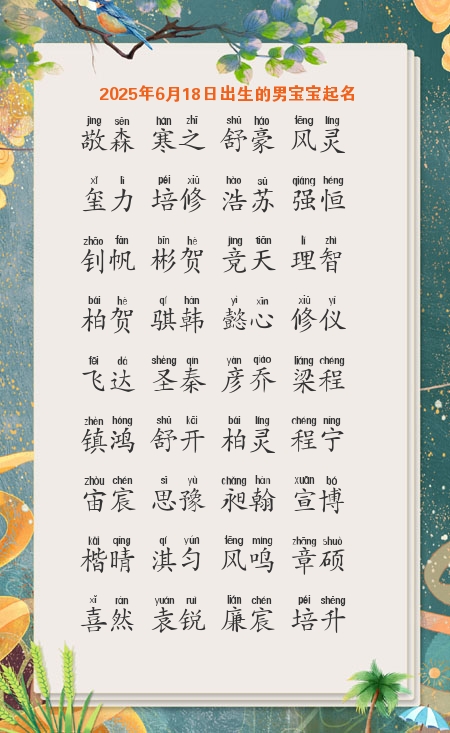 2025年6月18日出生的男宝宝起名
jìng sēn hán zhī shū háo fēng líng
敬森 寒之 舒豪 风灵
xǐ lì péi xiū hào sū qiáng héng
玺力 培修 浩苏 强恒
zhāo fān bīn hè jìng tiān lǐ zhì
钊帆 彬贺 竞天 理智
bǎi hè qí hán yì xīn xiū yí
柏贺 骐韩 懿心 修仪
fēi dá shèng qín yàn qiáo liáng chéng
飞达 圣秦 彦乔 梁程
zhèn hóng shū kāi bǎi líng chéng níng
镇鸿 舒开 柏灵 程宁
zhòu chén sī yù chǎng hàn xuān bó
宙宸 思豫 昶翰 宣博
kǎi qíng qí yún fēng míng zhāng shuò
楷晴 淇匀 风鸣 章硕
xǐ rán yuán ruì lián chén péi shēng
喜然 袁锐 廉宸 培升